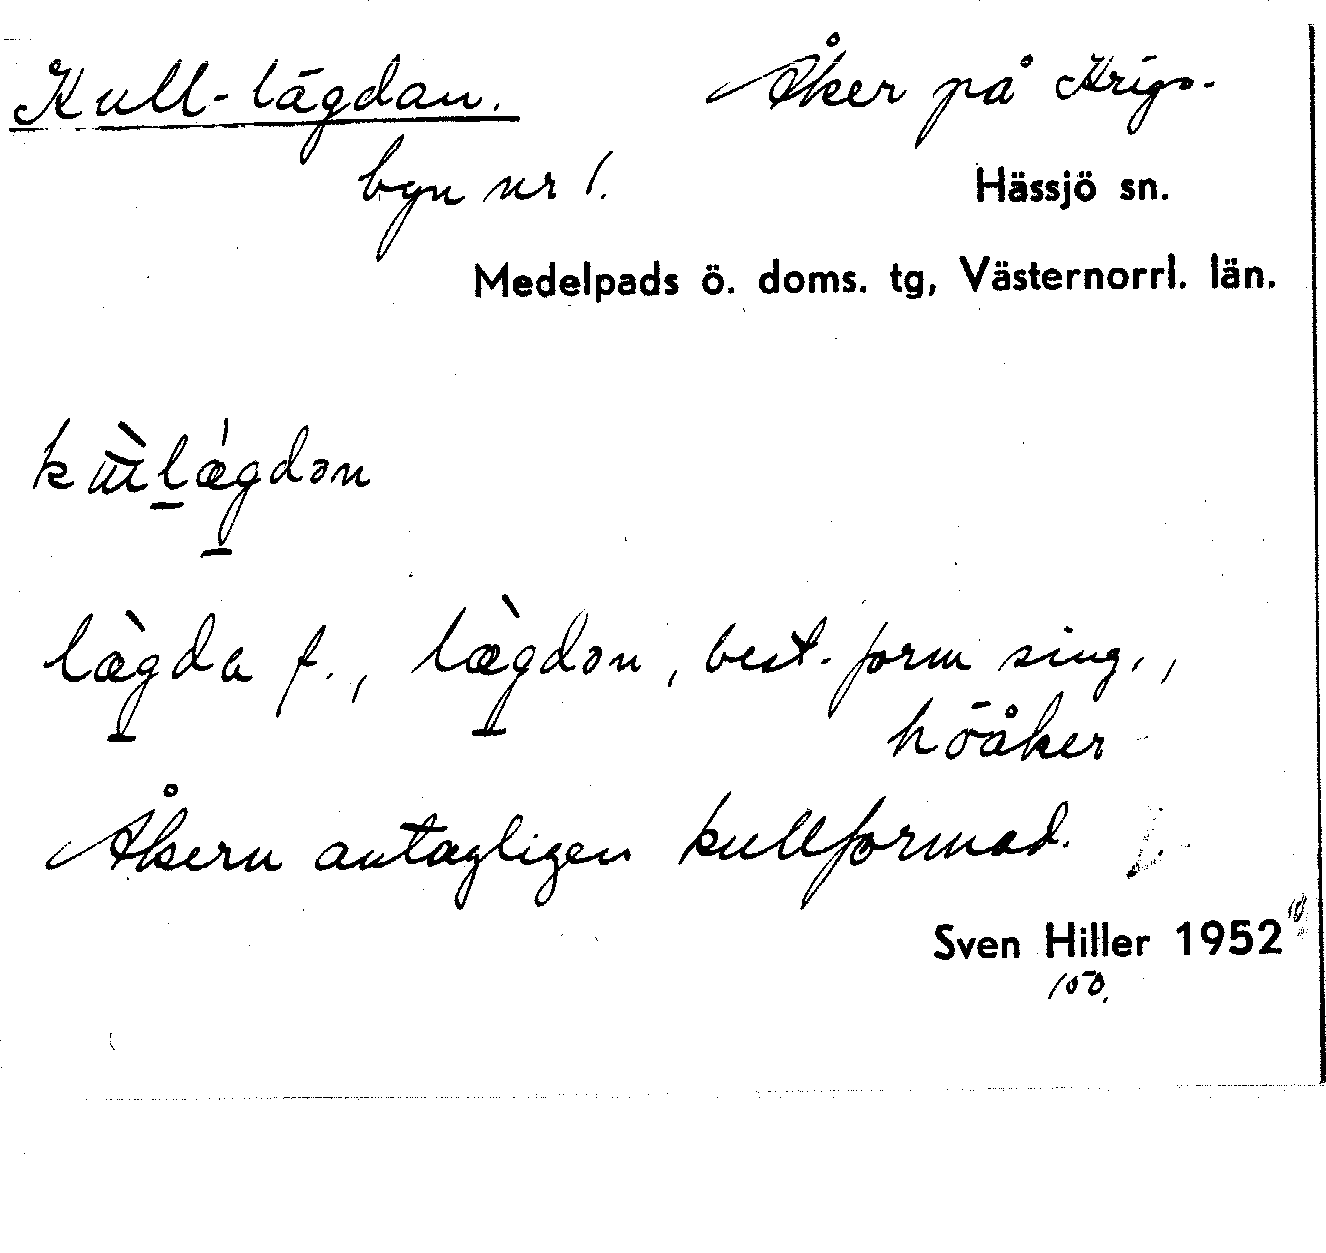 Kull-lägdan. Åker på Krigs-
byn nr 1. Hässjö sn.
Medelpads ö. doms. tg, Västernorrl. län.
lægda f., lægdən, best. form sing.,
höåker
Åkern antagligen kullformad.
Sven Hiller 1952